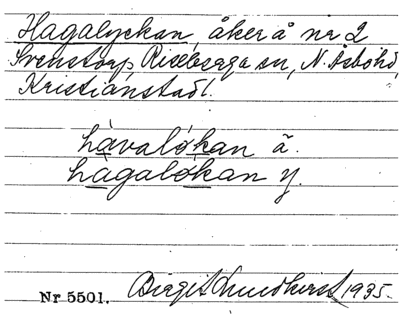 Hagalyckan, åker å nr 2
Svenstorp Riseberga sn, N. Åsbo hd,
Kristianstads l.
hàvalókan ä.
hàgalókan y.
Nr 5501. Birgit Lundkvist 1935.